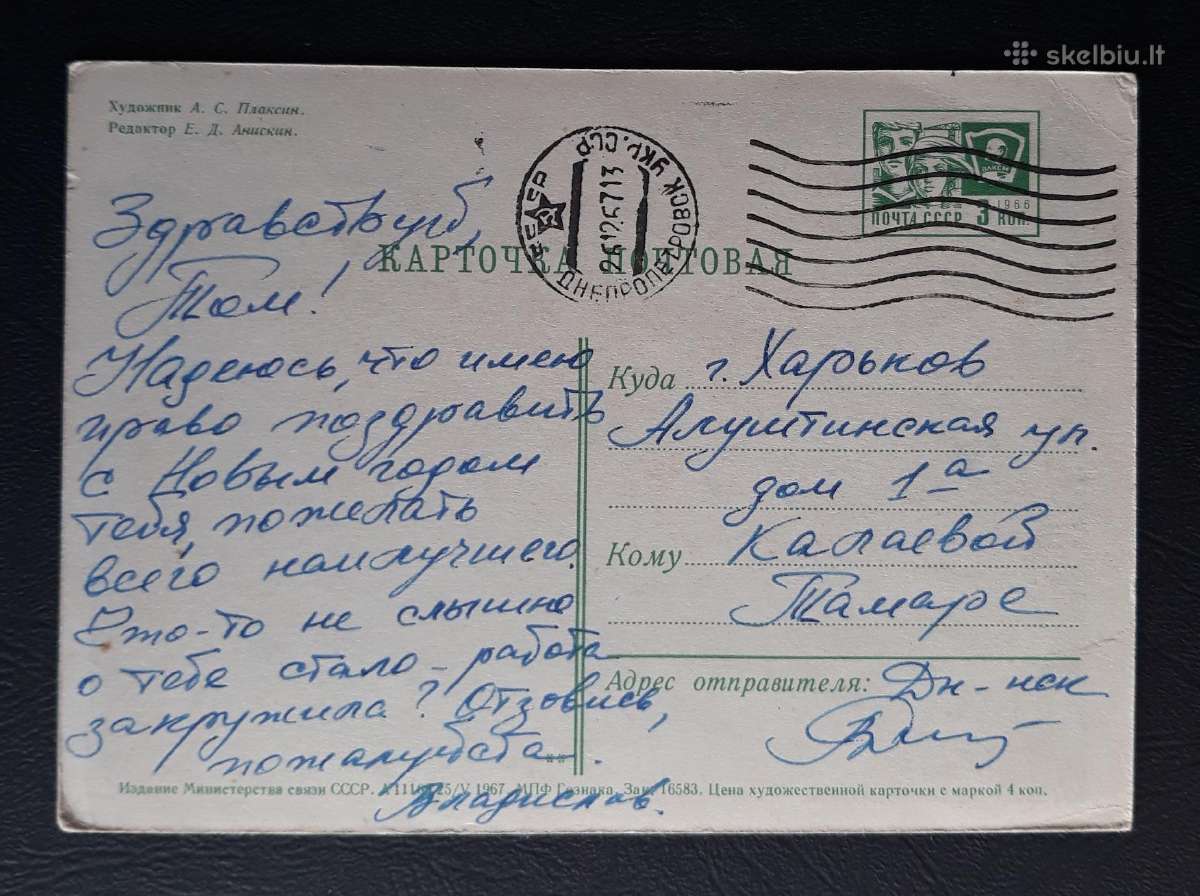 skelbiu.lt
Художник А. С. Плаксин.
Редактор Е. Д. Анискин.
ДНЕПРОПЕТРОВСК УКР. ССР
26 12 67 13
ВЛКСМ
1966
ПОЧТА СССР 3 КОП.
КАРТОЧКА ПОЧТОВАЯ
Здравствуй,
Том!
Надеюсь, что имею
право поздравить
с Новым годом
тебя, пожелать
всего наилучшего.
не слышно
о тебе стало - работа
закружила? Отзовись,
пожалуйста.
Владислав.
Куда г. Харьков
Алуштинская ул.
дом 1а
Кому Калаевой
Тамаре
Адрес отправителя:
Издание Министерства связи СССР. 25/V 1967. МПФ Гознака. Зак. 16583. Цена художественной карточки с маркой 4 коп.